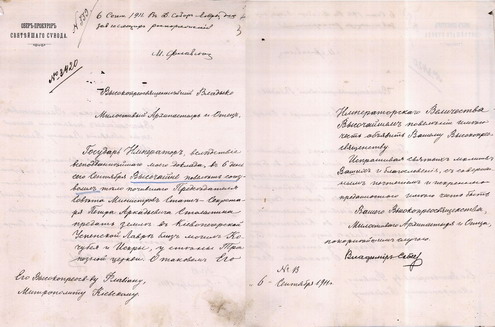 ОБЕРЪ-ПРОКУРОРЪ
СВЯТѢЙШАГО СѴНОДА.
№ 8420
6 Сент 1911. Въ Д. Соборъ Лавры для
М. Флавіанъ
Высокопреосвященнѣйшій Владыко
Милостивый Архипастырь и Отецъ.
Государь Императоръ, вслѣдствіе
всеподданнѣйшаго моего доклада, въ 6 день
сего Сентября Высочайше повелѣть соиз-
волилъ: тѣло почившаго Предсѣдателя
Совѣта Министровъ Статсъ-Секрета-
ря Петра Аркадьевича Столыпина
предать землѣ въ Кіевопечерской
Успенской Лаврѣ близъ могилъ Ко-
чубея и Искры, у стѣны Тра-
пезной церкви. О таковомъ Его
Его Высокопреосв-ву Флавіану,
Митрополиту Кіевскому.
Императорскаго Величества
Высочайшемъ повелѣніи имѣю
честь объявить Вашему Высокопрео-
священству
Испрашивая святыхъ молитвъ
Вашихъ и благословенія, съ совершен-
нымъ почтеніемъ и
преданностію имѣю честь быть
Вашего Высокопреосвященства,
Милостивый Архипастырь и Отецъ,
покорнѣйшимъ слугою
Владиміръ Саблеръ
№ 13
6 - Сентября 1911 г.